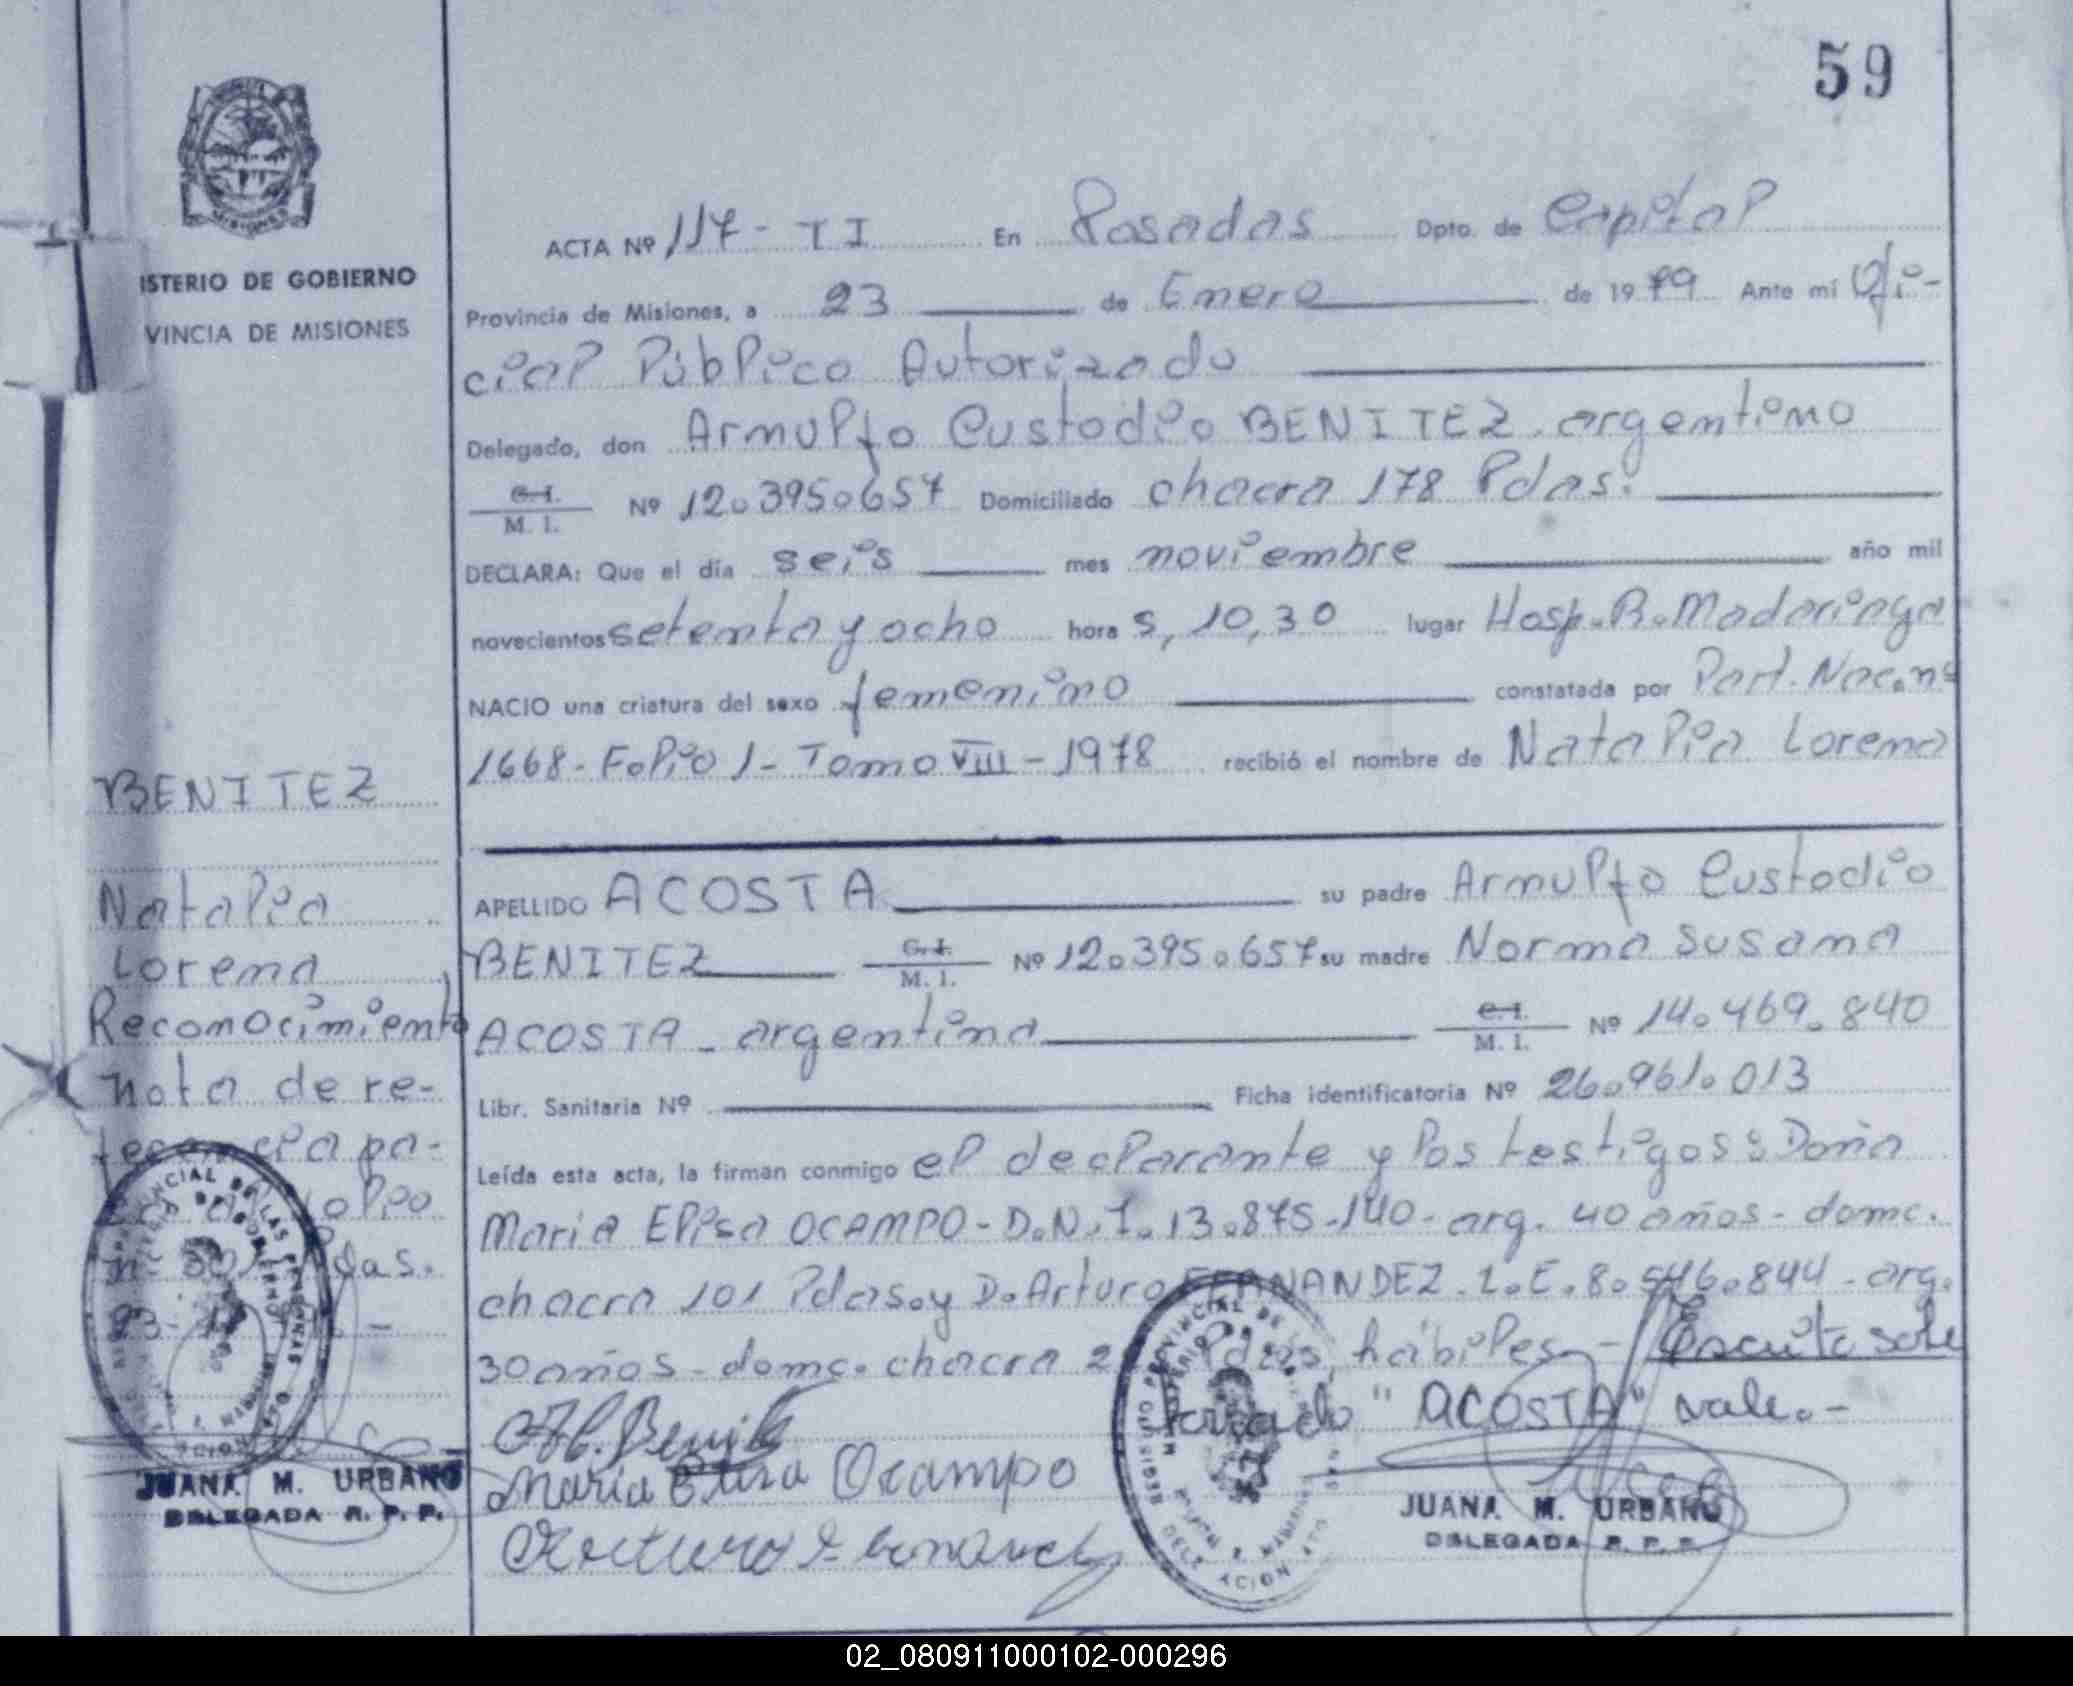 59
ISTERIO DE GOBIERNO
VINCIA DE MISIONES
ACTA Nº 117 - TI En Posadas Dpto. de Capital
Provincia de Misiones, a 23 de Enero de 1979 Ante mí Ofi-
cial Público Autorizado
Delegado, don Arnulfo Custodio BENITEZ. argentino
C. I. M. I. Nº 12.395.657 Domiciliado chacra 178 Pdas.
DECLARA: Que el día seis mes noviembre año mil
novecientos setenta y ocho hora s, 10,30 lugar Hosp. R. Madariaga
NACIO una criatura del sexo femenino constatada por Part. Nac. nº
1668 - Folio 1 - Tomo VIII - 1978 recibió el nombre de Natalia Lorena
APELLIDO ACOSTA su padre Arnulfo Custodio
BENITEZ C. I. M. I. Nº 12.395.657 su madre Norma Susana
ACOSTA - argentina C. I. M. I. Nº 14.469.840
Libr. Sanitaria Nº Ficha identificatoria Nº 26.961.013
Leída esta acta, la firman conmigo el declarante y los testigos: Doña
Maria Elisa OCAMPO - D.N.I. 13.875.140 - arg. 40 años - domc.
chacra 101 Pdas. y D. Arturo FERNANDEZ. L.E. 8.546.844 - arg.
30 años - domc. chacra Pdas, hábiles - Escrito sobre
raspado "ACOSTA" vale. -
Benitez
Maria Elisa Ocampo
Arturo Fernandez
JUANA M. URBANO
DELEGADA R. P. P.
BENITEZ
Natalia
Lorena
Reconocimiento
nota de re-
ferencia pa-
olio
Pdas.
23-
JUANA M. URBANO
DELEGADA R. P. P.
02_080911000102-000296